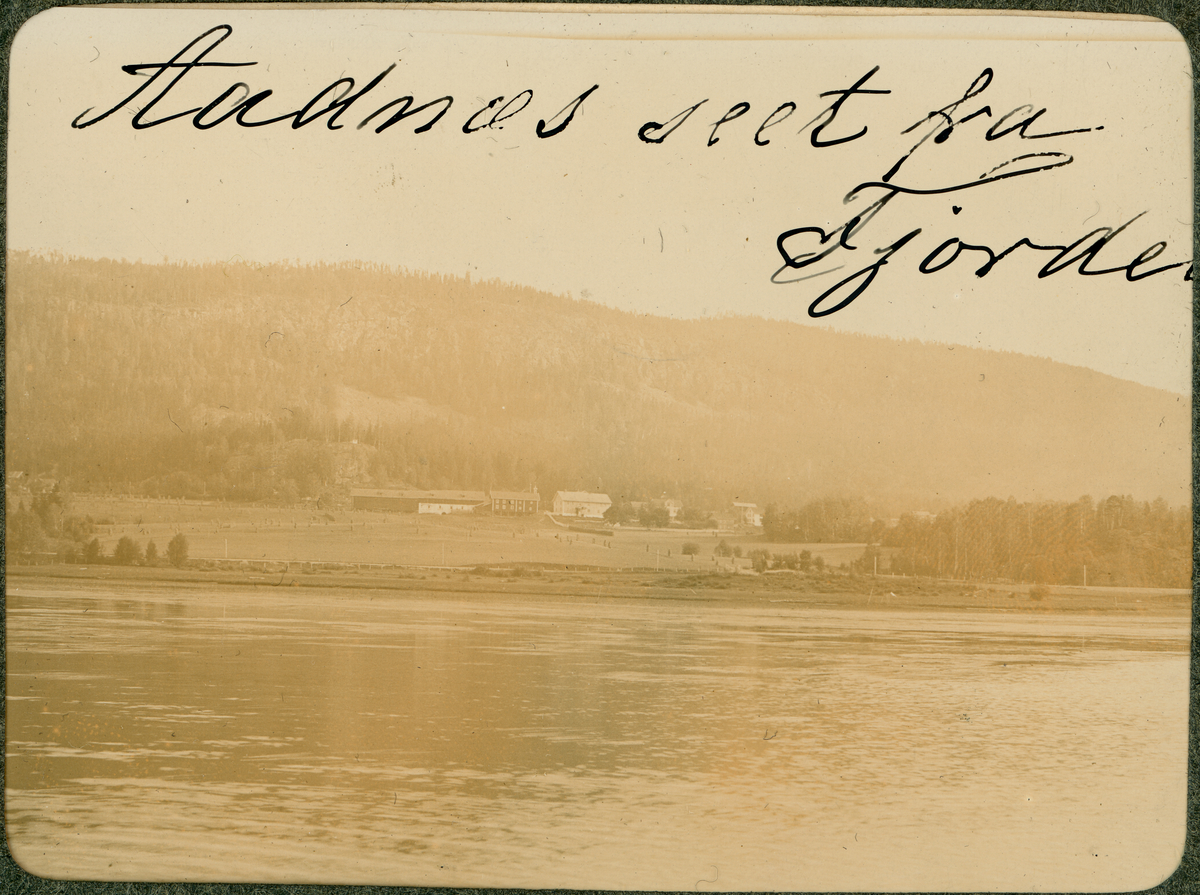 Aadnæs seet fra
Fjorden